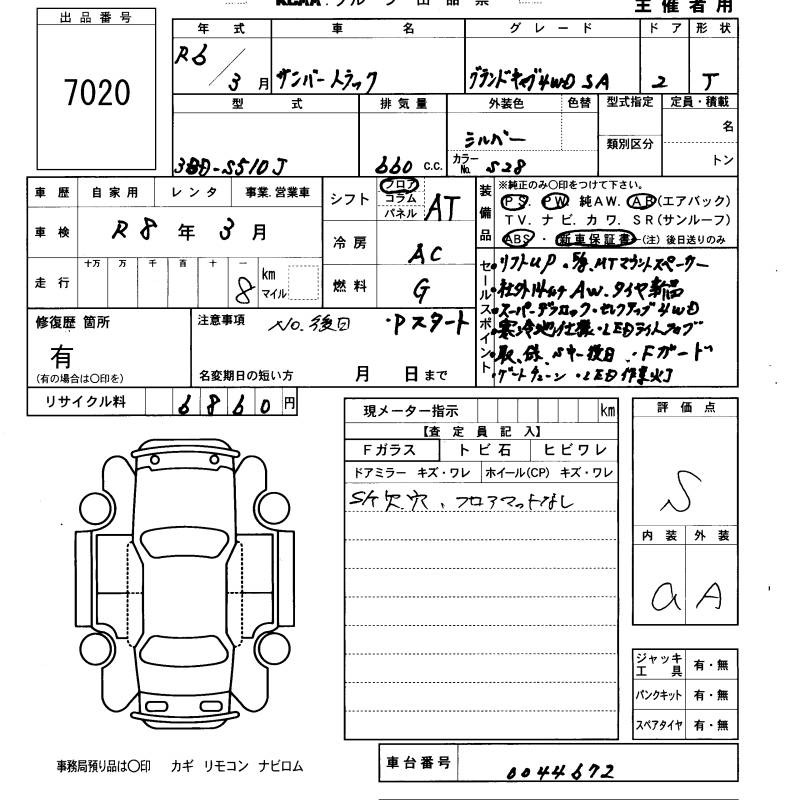 主催者用
出品番号
7020
年式 車名 グレード ドア 形状
R6 / 3月 サンバートラック グランドキャブ4WD SA 2 T
型式 排気量 外装色 色替 型式指定 定員・積載
3BD-S510J 660 c.c. シルバー 類別区分 名
カラーNo. S28 トン
車歴 自家用 レンタ 事業.営業車
車検 R8年 3月
走行 十万 万 千 百 十 一
8 km マイル
シフト フロア コラム パネル AT
冷房 AC
燃料 G
装備品
※純正のみ〇印をつけて下さい。
PS. PW 純AW. AB(エアバック)
TV. ナビ. カワ. SR(サンルーフ)
ABS ・ 新車保証書 (注)後日送りのみ
セールスポイント
・リフトUP ・5分.MTマウントスペーサー
・社外14インチ AW. タイヤ新品
・スーパーデフロック・セレクティブ4WD
・寒冷地仕様・LEDライトフォグ
・取.保.Sキー後日 ・Fガード
・ゲートチェーン ・LED作業灯
修復歴 箇所
有
(有の場合は〇印を)
注意事項 No.後日 ・Pスタート
名変期日の短い方 月 日まで
リサイクル料 6860円
現メーター指示 km
【査定員記入】
Fガラス トビ石 ヒビワレ
ドアミラー キズ・ワレ ホイール(CP) キズ・ワレ
Sケ欠穴、フロアマットなし
評価点
S
内装 外装
a A
ジャッキ工具 有・無
パンクキット 有・無
スペアタイヤ 有・無
事務局預り品は〇印 カギ リモコン ナビロム
車台番号 0044672